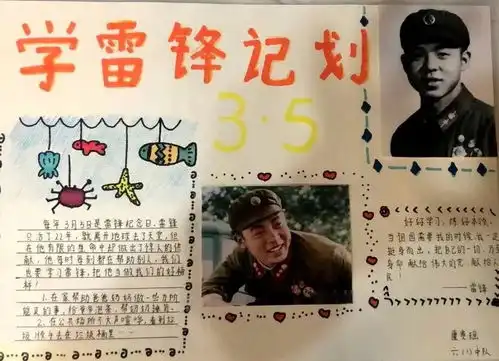 学雷锋记划
3·5
每年3月5日是雷锋纪念日,雷锋
只活了22年,就离开地球去了天堂,但
在他有限的生命中却做出了伟大的贡
献,他每时每刻都在帮助别人,我们
也要学习雷锋,把他当做我们的好榜
样!
1.在家帮助爸爸妈妈做一些力所
能及的事,
2.在公共场所不大声喧哗,看到垃
圾
好好学习,练好本领,
当祖国需要我的时候,我一定
挺身而出,把自己的一切,乃至
身命献给伟大的党,献给人
民!
——雷锋
六(1)中队